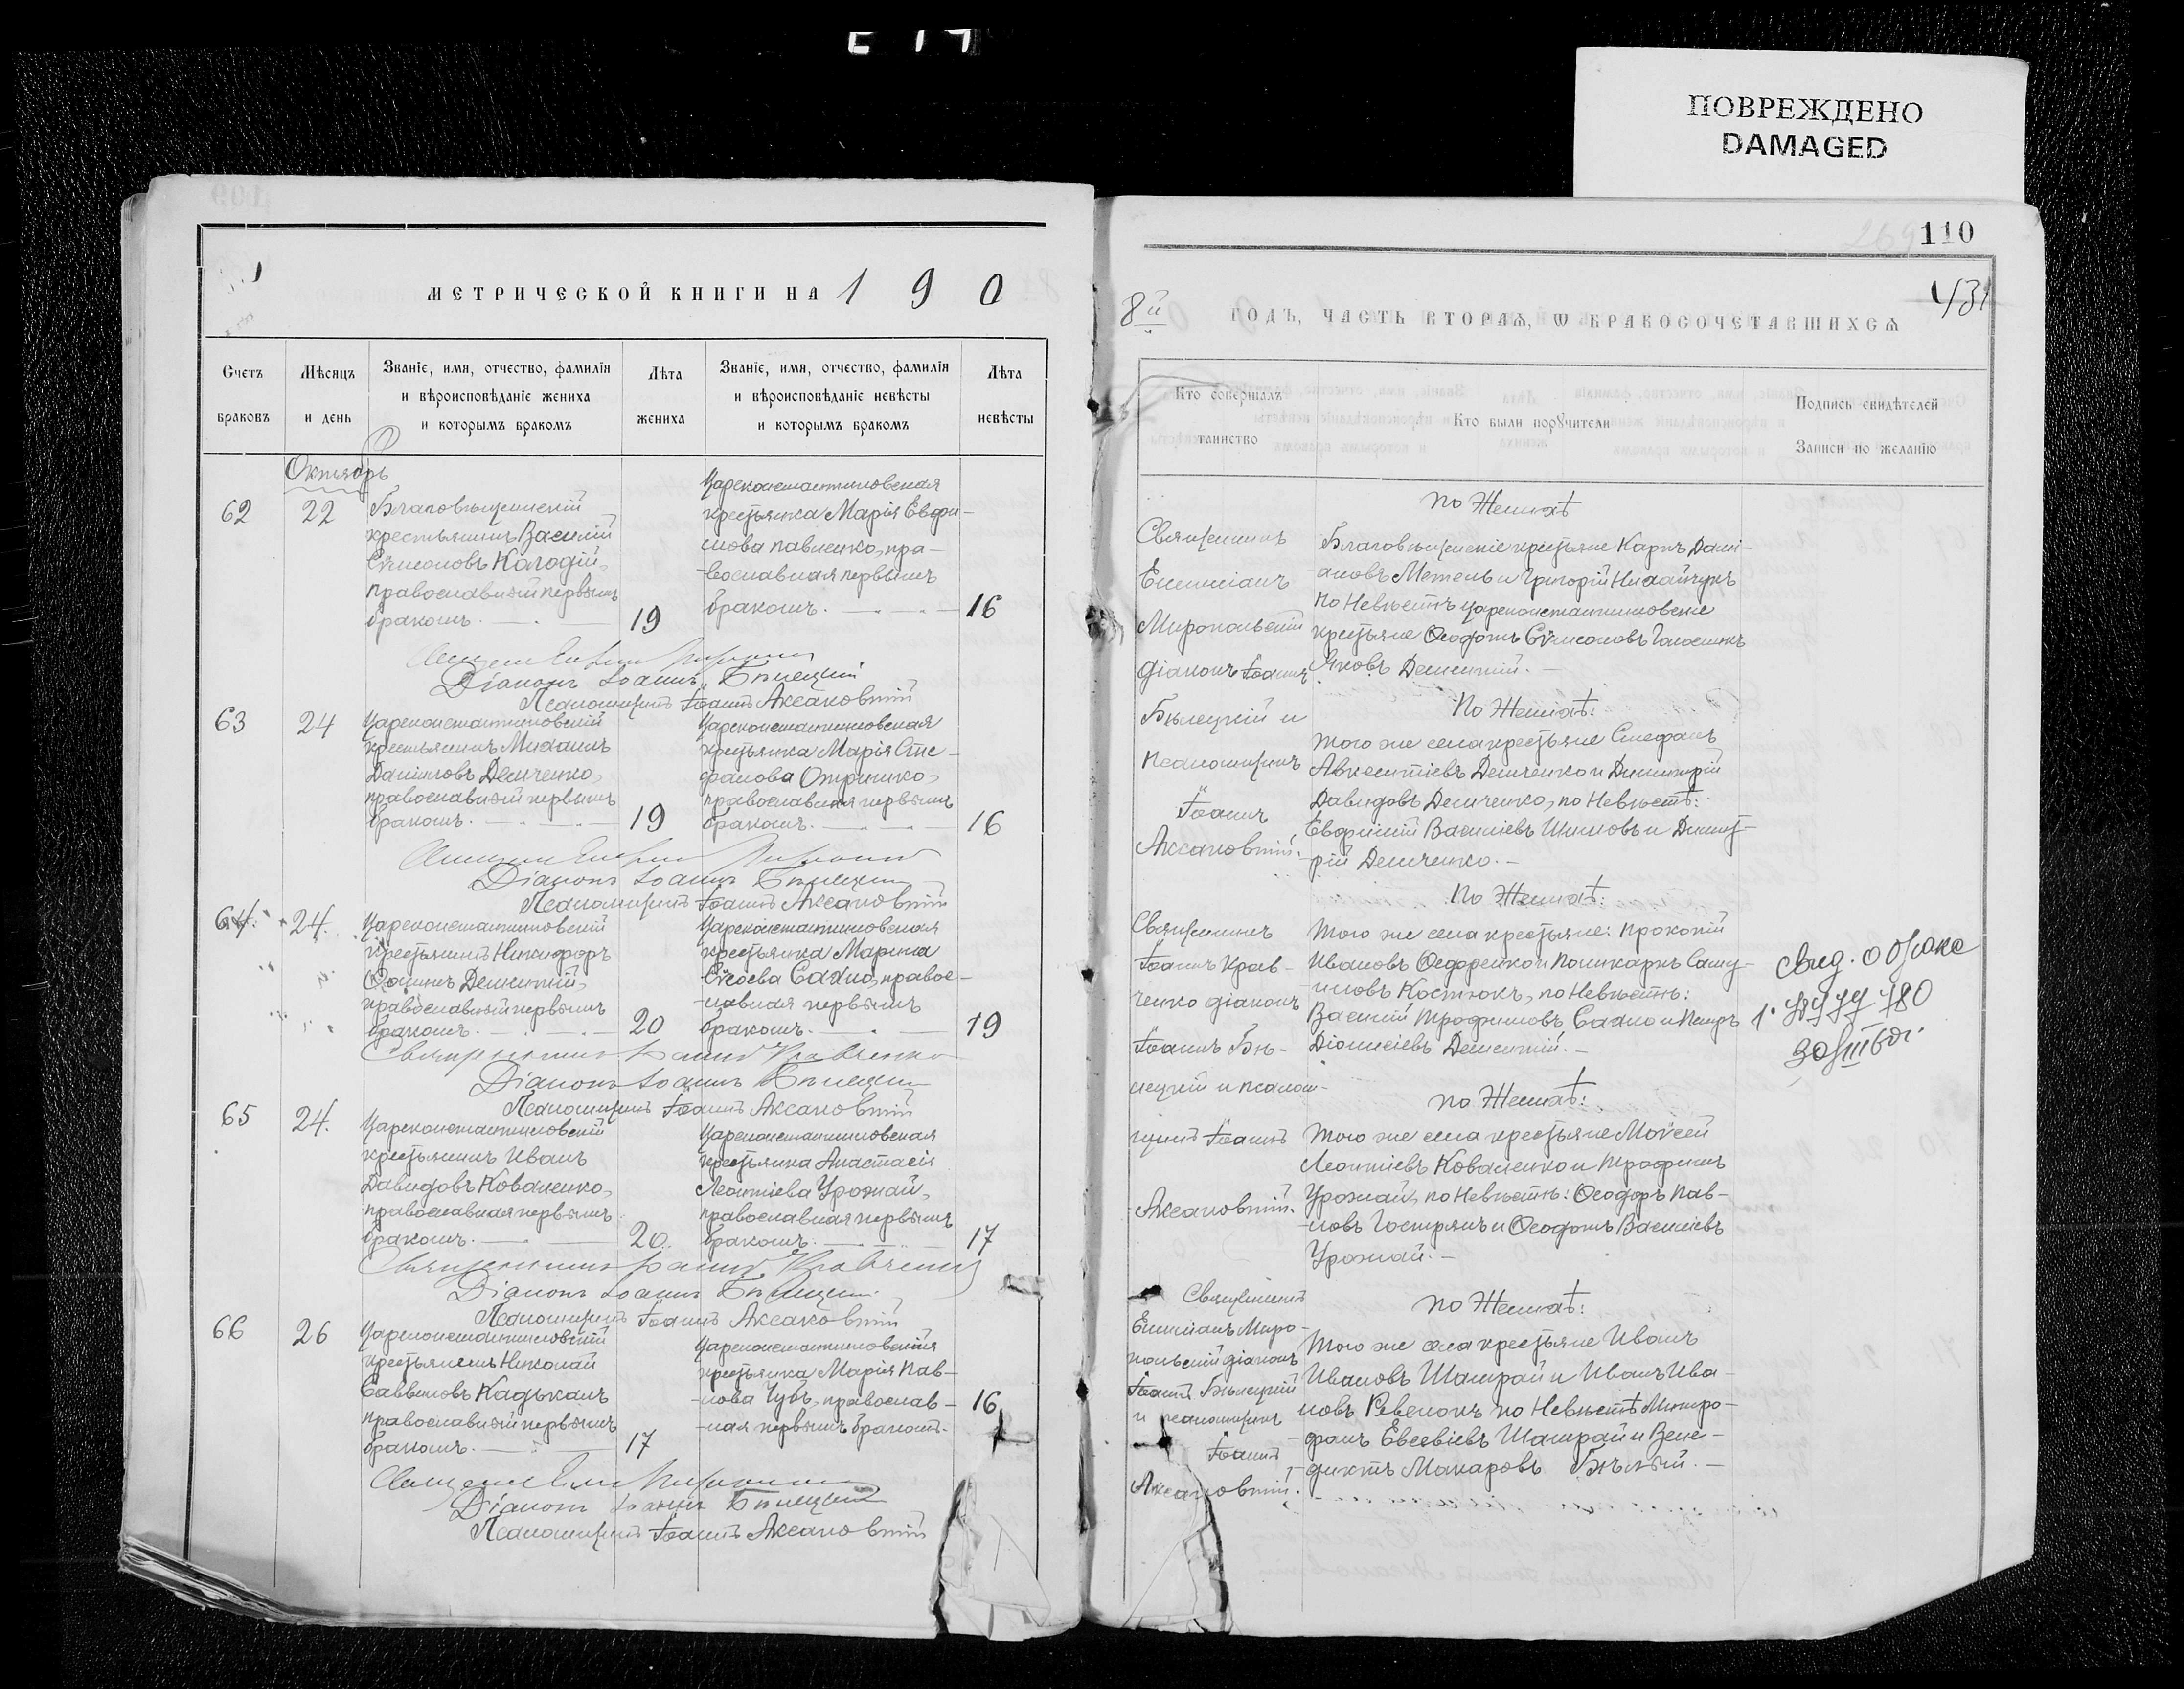 ПОВРЕЖДЕНО
DAMAGED
МЕТРИЧЕСКОЙ КНИГИ НА 1 9 0
Счетъ
браковъ
Мѣсяцъ
и день
Званіе, имя, отчество, фамилія
и вѣроисповѣданіе жениха
и которымъ бракомъ
Лѣта
жениха
Званіе, имя, отчество, фамилія
и вѣроисповѣданіе невѣсты
и которымъ бракомъ
Лѣта
невѣсты
Октябрь
62
22
Благовѣщенскій
крестьянинъ Василій
Сѵмеоновъ Колодій,
православный первымъ
бракомъ.
19
Цареконстантиновская
крестьянка Марія Евфи-
мова Павленко, пра-
-вославная первымъ
бракомъ.
16
Діаконъ Іоаннъ Бѣлецкій
Псаломщикъ Іоаннъ Аксаковскій
63
24
Цареконстантиновскій
крестьянинъ Михаилъ
Даніиловъ Демченко,
православный первымъ
бракомъ.
19
Цареконстантиновская
крестьянка Марія Сте-
фанова Отришко,
православная первымъ
бракомъ.
16
Діаконъ Іоаннъ Бѣлецкій
Псаломщикъ Іоаннъ Аксаковскій
64.
24.
Цареконстантиновскій
крестьянинъ Никифоръ
Ѳоминъ Дементій,
православный первымъ
бракомъ.
20
Цареконстантиновская
крестьянка Марина
Сахно, правос-
-лавная первымъ
бракомъ.
19
Священникъ Іоаннъ Кравченко
Діаконъ Іоаннъ Бѣлецкій
Псаломщикъ Іоаннъ Аксаковскій
65
24.
Цареконстантиновскій
крестьянинъ Иванъ
Давидовъ Коваленко,
православная первымъ
бракомъ.
20.
Цареконстантиновская
крестьянка Анастасія
Леонтіева Урожай,
православная первымъ
бракомъ.
17
Священникъ Іоаннъ Кравченко
Діаконъ Іоаннъ Бѣлецкій
Псаломщикъ Іоаннъ Аксаковскій
66
26
Цареконстантиновскій
крестьянинъ Николай
Саввиновъ Кадькалъ
православный первымъ
бракомъ.
17
Цареконстантиновская
крестьянка Марія Пав-
-лова Чубъ, православ-
-ная первымъ бракомъ.
16
Діаконъ Іоаннъ Бѣлецкій
Псаломщикъ Іоаннъ Аксаковскій
110
431
8й
ГОДЪ, ЧАСТЬ ВТОРАЯ, Ѡ БРАКОСОЧЕТАВШИХСЯ
Кто совершалъ
таинство
Кто были поручители
Подпись свидѣтелей
Записи по желанію
Священникъ
Емиліанъ
Миропольскій
діаконъ Іоаннъ
Бѣлецкій и
псаломщикъ
Іоаннъ
Аксаковскій.
По Женихѣ
Благовѣщенскіе крестьяне Карпъ Дани-
-ловъ Метель и Григорій
По Невѣстѣ Цареконстантиновскіе
крестьяне Ѳеодотъ Сѵмеоновъ
Яковъ Дементій.
По Женихѣ:
того же села крестьяне Стефанъ
Авксентіевъ Демченко и Димитрій
Давидовъ Демченко, по Невѣстѣ:
Евфимій Василіевъ Шиловъ и Димит-
рій Демченко.
Священникъ
Іоаннъ Крав-
ченко діаконъ
Іоаннъ Бѣ-
лецкій и псалом-
щикъ Іоаннъ
Аксаковскій.
По Женихѣ:
Того же села крестьяне: Прокопій
Ивановъ Ѳедоренко и Поликарпъ Саму-
иловъ Костюкъ, по Невѣстѣ:
Василій Трофимовъ Сахно и Петръ
Діонисіевъ Дементій.
свид. о браке
По Женихѣ:
Того же села крестьяне Моѵсей
Леонтіевъ Коваленко и Трофимъ
Урожай, по Невѣстѣ: Ѳеодоръ Пав-
-ловъ Гостракъ и Ѳеодотъ Василіевъ
Урожай.
Священникъ
Емиліанъ Миро-
польскій діаконъ
Іоаннъ Бѣлецкій
и псаломщикъ
Іоаннъ
Аксаковскій.
По Женихѣ:
Того же села крестьяне Иванъ
Ивановъ Шамрай и Иванъ Ива-
новъ Ревенокъ по Невѣстѣ Митро-
фанъ Евсевіевъ Шамрай и Вене-
диктъ Макаровъ Бѣлый.